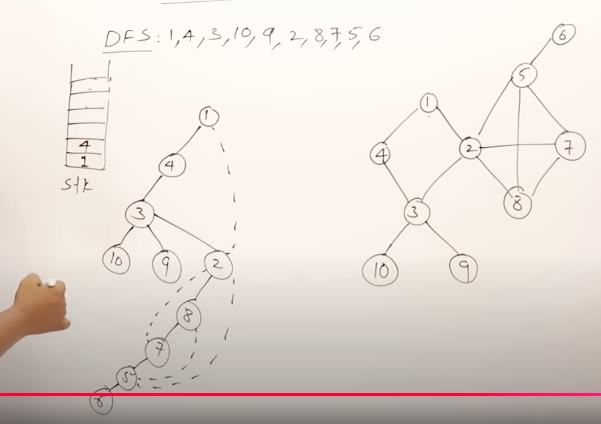 DFS: 1,4,3,10,9,2,8,7,5,6
4
1
stk
1
4
3
10
9
2
8
7
5
6
1
2
3
4
5
6
7
8
9
10